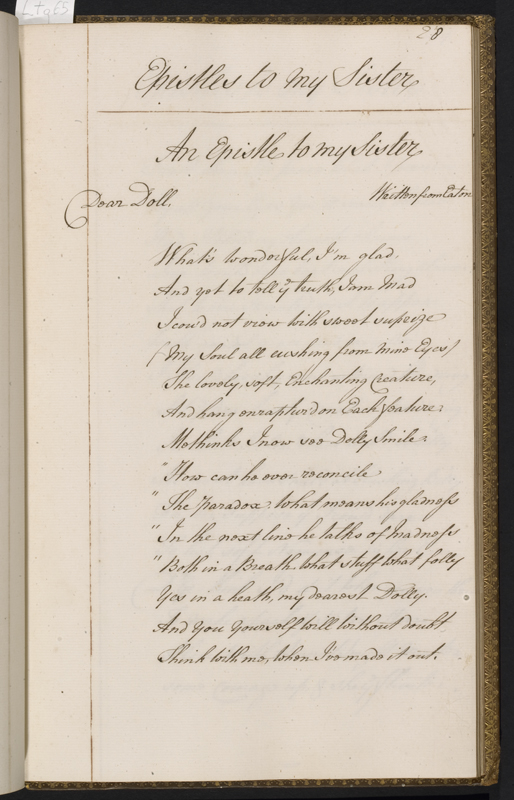 L+q65
28
Epistles to my Sister
An Epistle to my Sister
Written from Eaton
Dear Doll,
What's wonderful, I'm glad,
And yet to tell yͤ truth, I am Mad
I cou'd not view with sweet suprize
(My Soul all rushing from mine Eyes)
The lovely, soft, Enchanting Creature,
And hang enraptur'd on Each feature:
Methinks I now see Dolly Smile:
"How can he ever reconcile
"The Paradox: What means his gladness
"In the next line he talks of madness
"Both in a Breath. What stuff what folly
Yes in a heath, my dearest Dolly.
And You Yourself will without doubt
Think with me, when I've made it out.